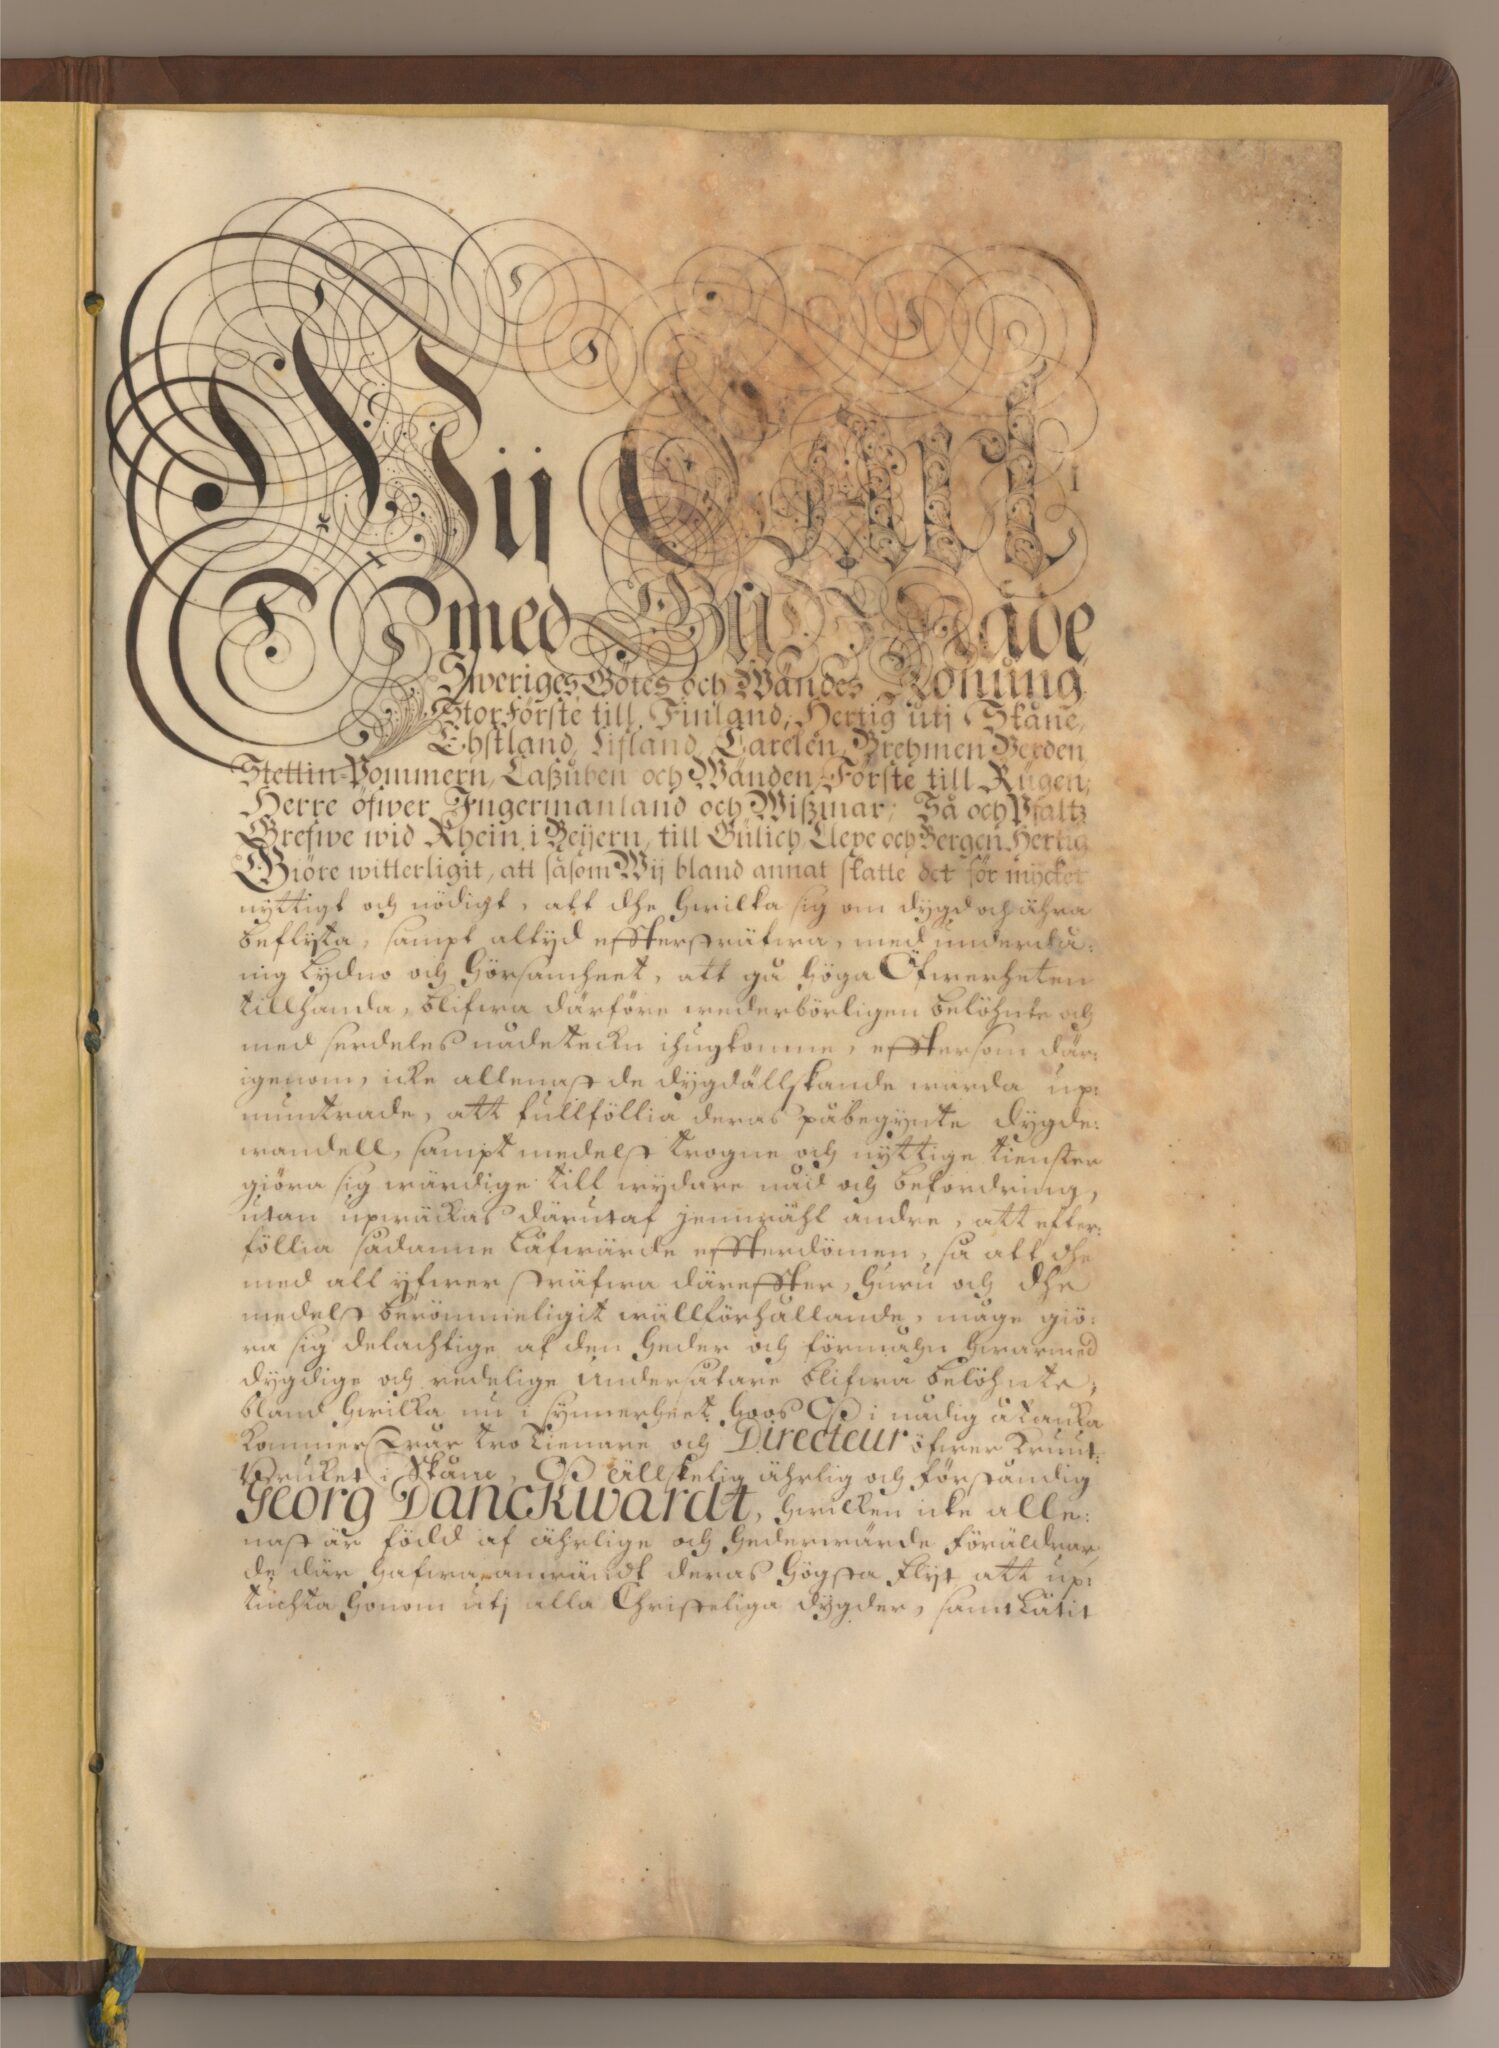 Wij Carl
med Gudz Nåde
Sweriges Götes och Wändes Konung
StorFörste till Finland, Hertig utj Skåne,
Ehstland, Lifland, Carelen, Brehmen Verden,
Stettin-Pommern, Caßuben och Wänden, Förste till Rügen,
Herre öfwer Ingermanland och Wißmar; Så och Pfaltz
Grefwe wid Rhein i Beijern, till Gülich, Cleve och Bergen Hertig
Giöre witterligit, att såsom Wij bland annat skatte det för mycket
nyttigt och nödigt, att dhe hwilka sig om dygd och ähra
beflyta, sampt altyd effterträfwa, med underdå:
nig lydno och hörsamheet, att gå höga Öfwerheten
tillhanda, blifwa därföre wederbörligen belöhnte och
med serdeles nådeteckn ihugkomne, effter som där:
igenom, icke allenast de dygdällskande warda up:
muntrade, att fullföllia deras påbegynte dygde:
wandell, sampt medelst trogne och nyttige tienster
giöra sig wärdige till wydare nåd och befordring,
utan upwäckas därutaf jemwähl andre, att efter:
föllia sådanne låfwärde effterdömen, så att dhe
med all yfwer sträfwa däreffter, huru och dhe
medelst berömmeligit wällförhållande, måge giö:
ra sig delachtige af den heder och förmåhn hwarmed
dygdige och redelige undersåtare blifwa belöhnte,
bland hwilka nu i synnerheet hoos Oß i nådig åtanka
kommer Wår tro tienare och Directeur öfwer Kruut:
Bruket i Skåne, Oß älskelig ährlig och förståndig
Georg Danckwardt, hwilken icke alle:
nast är född af ährlige och hederwärde föräldrar,
de där hafwa anwändt deras högsta flyt att up:
tuchta honom utj alla Christeliga dygder, samt låtit